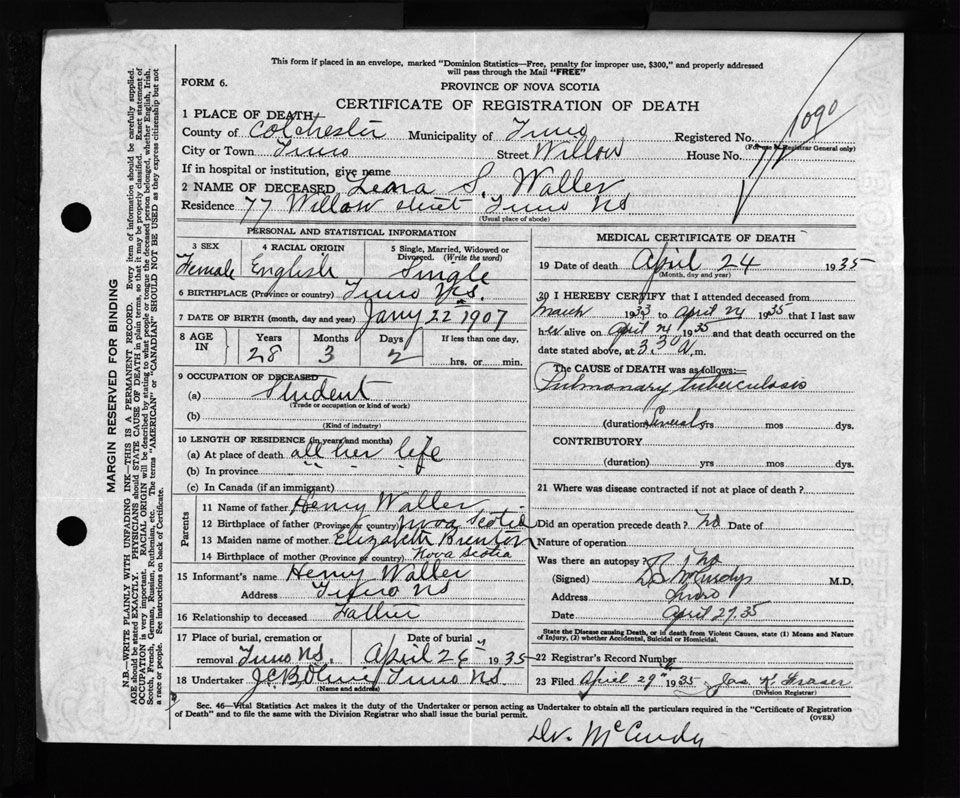 This form if placed in an envelope, marked "Dominion Statistics—Free, penalty for improper use, $300," and properly addressed
will pass through the Mail "FREE"
FORM 6.
PROVINCE OF NOVA SCOTIA
CERTIFICATE OF REGISTRATION OF DEATH
1090
1 PLACE OF DEATH
County of Colchester Municipality of Truro Registered No.
(For use of Registrar General only)
City or Town Truro Street Willow House No. 77
If in hospital or institution, give name
2 NAME OF DECEASED Lena S. Waller
Residence 77 Willow street Truro NS
(Usual place of abode)
PERSONAL AND STATISTICAL INFORMATION
3 SEX 4 RACIAL ORIGIN 5 Single, Married, Widowed or Divorced. (Write the word)
Female English Single
6 BIRTHPLACE (Province or country) Truro N.S.
7 DATE OF BIRTH (month, day and year) Jany 22nd 1907
8 AGE IN Years Months Days If less than one day,
28 3 2 hrs. or min.
9 OCCUPATION OF DECEASED
(a) Student
(Trade or occupation or kind of work)
(b)
(Kind of industry)
10 LENGTH OF RESIDENCE (in years and months)
(a) At place of death all her life
(b) In province " " "
(c) In Canada (if an immigrant)
Parents
11 Name of father Henry Waller
12 Birthplace of father (Province or country) Nova Scotia
13 Maiden name of mother Elizabeth Brenton
14 Birthplace of mother (Province or country) Nova Scotia
15 Informant's name Henry Waller
Address Truro NS
16 Relationship to deceased Father
17 Place of burial, cremation or Date of burial
removal Truro NS. April 26th 1935
18 Undertaker Truro NS
(Name and address)
MEDICAL CERTIFICATE OF DEATH
19 Date of death April 24 1935
(Month, day and year)
20 I HEREBY CERTIFY that I attended deceased from
March 1933 to April 24 1935 that I last saw
her alive on April 24 1935 and that death occurred on the
date stated above, at 3.30 a.m.
The CAUSE OF DEATH was as follows:
Pulmonary tuberculosis
(duration) Several yrs mos dys.
CONTRIBUTORY
(duration) yrs mos dys.
21 Where was disease contracted if not at place of death?
Did an operation precede death? No Date of
Nature of operation
Was there an autopsy? No
(Signed) McCurdy M.D.
Address Truro
Date April 27.35
State the Disease causing Death, or in death from Violent Causes, state (1) Means and Nature
of Injury, (2) whether Accidental, Suicidal or Homicidal.
22 Registrar's Record Number
23 Filed April 29th 1935 Jas. K. Fraser
(Division Registrar)
Sec. 46—Vital Statistics Act makes it the duty of the Undertaker or person acting as Undertaker to obtain all the particulars required in the "Certificate of Registration
of Death" and to file the same with the Division Registrar who shall issue the burial permit.
(OVER)
Dr. McCurdy
MARGIN RESERVED FOR BINDING
N.B.—WRITE PLAINLY WITH UNFADING INK—THIS IS A PERMANENT RECORD. Every item of information should be carefully supplied.
AGE should be stated EXACTLY. PHYSICIANS should STATE CAUSE OF DEATH in plain terms, so that it may be properly classified. Exact statement of
OCCUPATION is very important. RACIAL ORIGIN will be described by stating to what people or tongue the deceased person belonged, whether English, Irish,
Scotch, French, German, Russian, Ruthenian, etc. The terms "AMERICAN" or "CANADIAN" SHOULD NOT BE USED as they express citizenship but not
a race or people. See instructions on back of Certificate.